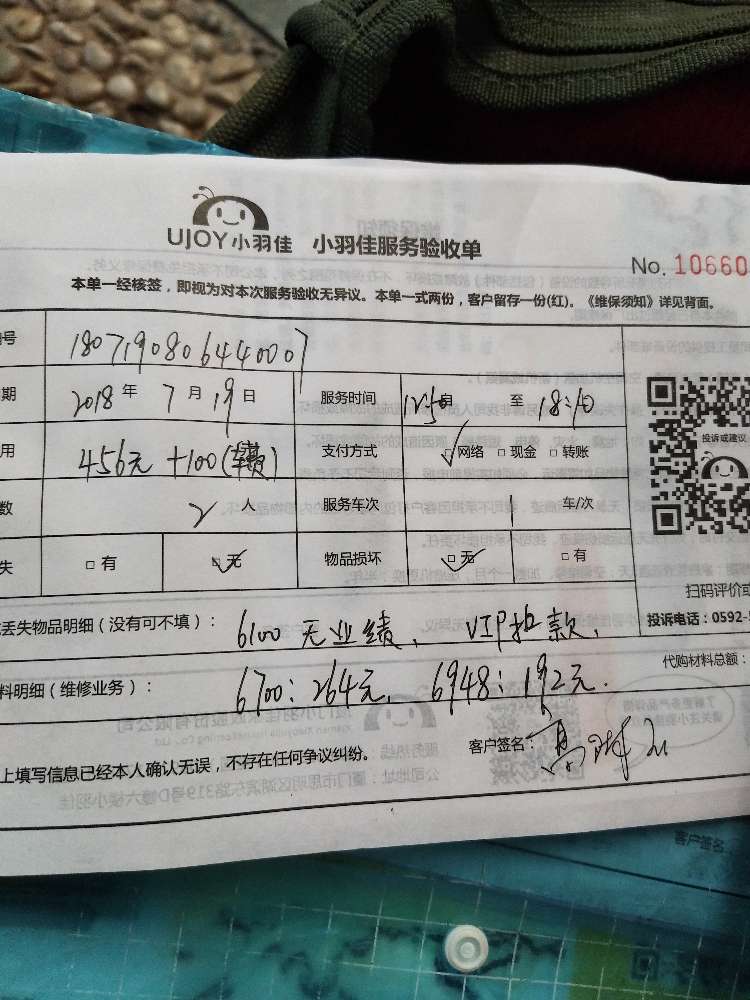 UJOY小羽佳 小羽佳服务验收单
No. 10660
本单一经核签，即视为对本次服务验收无异议。本单一式两份，客户留存一份(红)。《维保须知》详见背面。
号 180719080644000
期 2018 年 7 月 19 日 服务时间 自 至 18:10
投诉或建议
用 456元 +100(车费) 支付方式 □网络 □现金 □转账
数 2 人 服务车次 1 车/次
失 □有 □无 物品损坏 □无 □有
扫码评价或
丢失物品明细（没有可不填）： 6100 无业绩、 VIP扣款、
投诉电话：0592-5
料明细（维修业务）： 6700：264元、6948：192元.
代购材料总额：
上填写信息已经本人确认无误，不存在任何争议纠纷。
客户签名：
客户签名